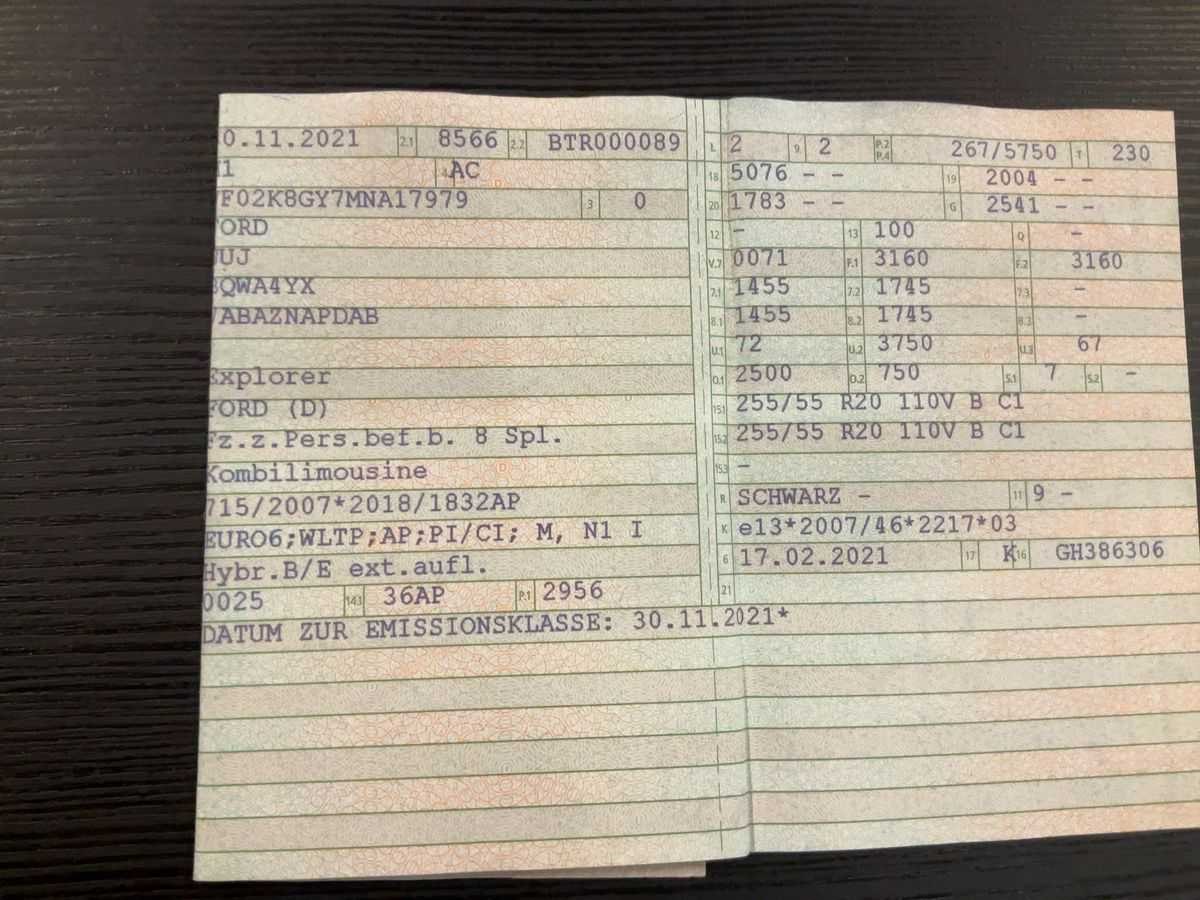 0.11.2021 2.1 8566 2.2 BTR000089
1 4 AC
F02K8GY7MNA17979 3 0
FORD
UJ
BQWA4YX
VABAZNAPDAB
Explorer
FORD (D)
Fz.z.Pers.bef.b. 8 Spl.
Kombilimousine
715/2007*2018/1832AP
EURO6;WLTP;AP;PI/CI; M, N1 I
Hybr.B/E ext.aufl.
0025 14.1 36AP P.1 2956
DATUM ZUR EMISSIONSKLASSE: 30.11.2021*
L 2 9 2 P.2 P.4 267/5750 T 230
18 5076 - - 19 2004 - -
20 1783 - - G 2541 - -
12 - 13 100 Q -
V.7 0071 F.1 3160 F.2 3160
7.1 1455 7.2 1745 7.3 -
8.1 1455 8.2 1745 8.3 -
U.1 72 U.2 3750 U.3 67
O.1 2500 O.2 750 S.1 7 S.2 -
15.1 255/55 R20 110V B C1
15.2 255/55 R20 110V B C1
15.3 -
R SCHWARZ - 11 9 -
K e13*2007/46*2217*03
6 17.02.2021 17 K 16 GH386306
21